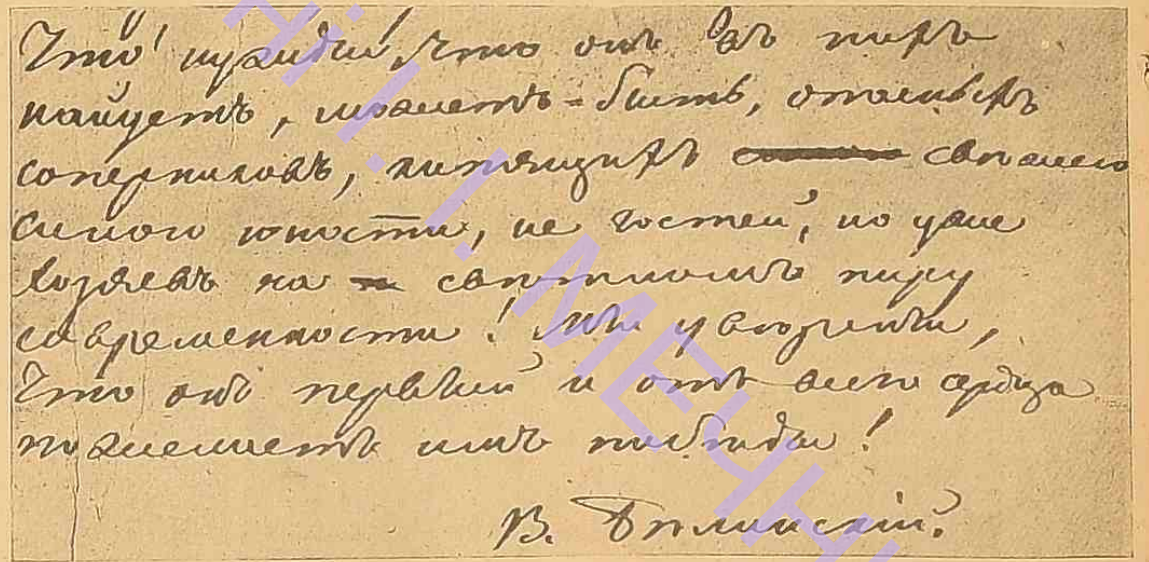 Что нужды, что онъ въ нихъ
найдетъ, можетъ-быть, опасныхъ
соперниковъ, кипящихъ свѣжею
силою юности, не гостей, но уже
хозяевъ на свѣтломъ пиру
современности! Мы увѣрены,
что онъ первый и отъ всего сердца
пожелаетъ имъ побѣды!
В. Бѣлинскій.
І. І. МЕЧН